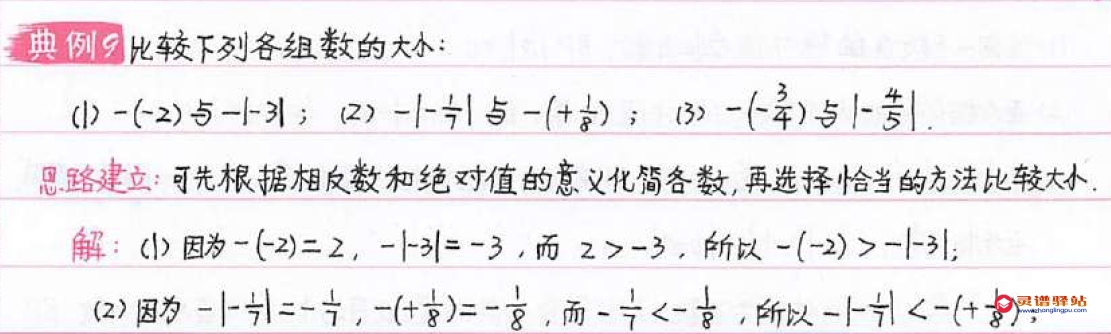 典例9 比较下列各组数的大小:
(1) -(-2)与-|-3|; (2) -|-1/7|与-(+1/8); (3) -(-3/4)与|-4/5|.
思路建立:可先根据相反数和绝对值的意义化简各数,再选择恰当的方法比较大小.
解:(1)因为-(-2)=2, -|-3|=-3,而 2>-3,所以-(-2)>-|-3|;
(2)因为-|-1/7|=-1/7,-(+1/8)=-1/8,而-1/7<-1/8,所以-|-1/7|<-(+1/8);
灵谱驿站
www.zhanglingpu.com